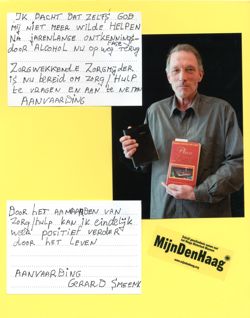 IK DACHT DAT ZELFS GOD
MIJ NIET MEER WILDE HELPEN
NA JARENLANGE ONTKENNINGS-
FACE
DOOR ALCOHOL NU OP WEG TERUG
ZORGWEKKENDE ZORGMIJDER
IS NU BEREID OM ZORG/HULP
TE VRAGEN EN AAN TE NEMEN
AANVAARDING
DOOR HET AANVAARDEN VAN
ZORG/HULP KAN IK EINDELIJK
WEER POSITIEF VERDER
DOOR HET LEVEN
AANVAARDING
GERARD SMEENK
MijnDenHaag